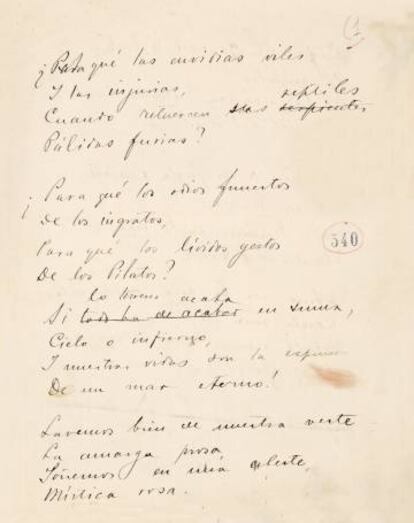 ¿Para qué las envidias viles
I las injurias,
reptiles
Cuando retuercen sus serpientes
Pálidas furias?
¿Para qué los odios funestos
De los ingratos,
Para qué los lívidos gestos
De los Pilatos?
540
lo terreno acaba
Si todo ha de acabar en suma,
Cielo o infierno,
I nuestras vidas son la espuma
De un mar eterno!
Lavemos bien de nuestra veste
La amarga prosa
Soñemos en una celeste,
Mística rosa.